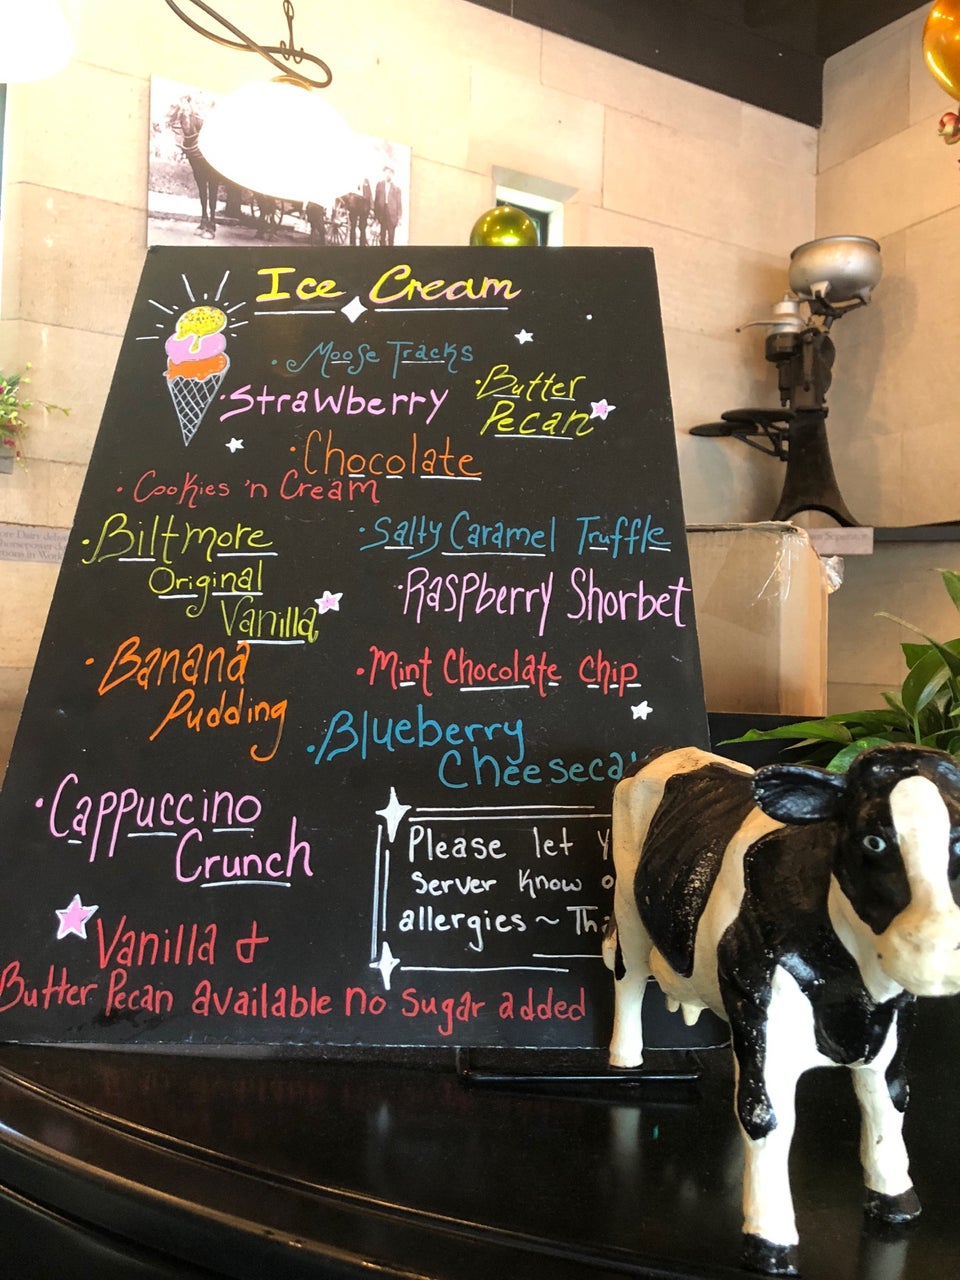 Ice Cream
Moose Tracks
Strawberry
Butter
Pecan
Chocolate
Cookies 'n Cream
Biltmore
Original
Vanilla
Salty Caramel Truffle
Raspberry Shorbet
Banana
Pudding
Mint Chocolate Chip
Blueberry
Cappuccino
Crunch
Please let
Server Know
allergies ~
Vanilla &
Butter Pecan available no sugar added